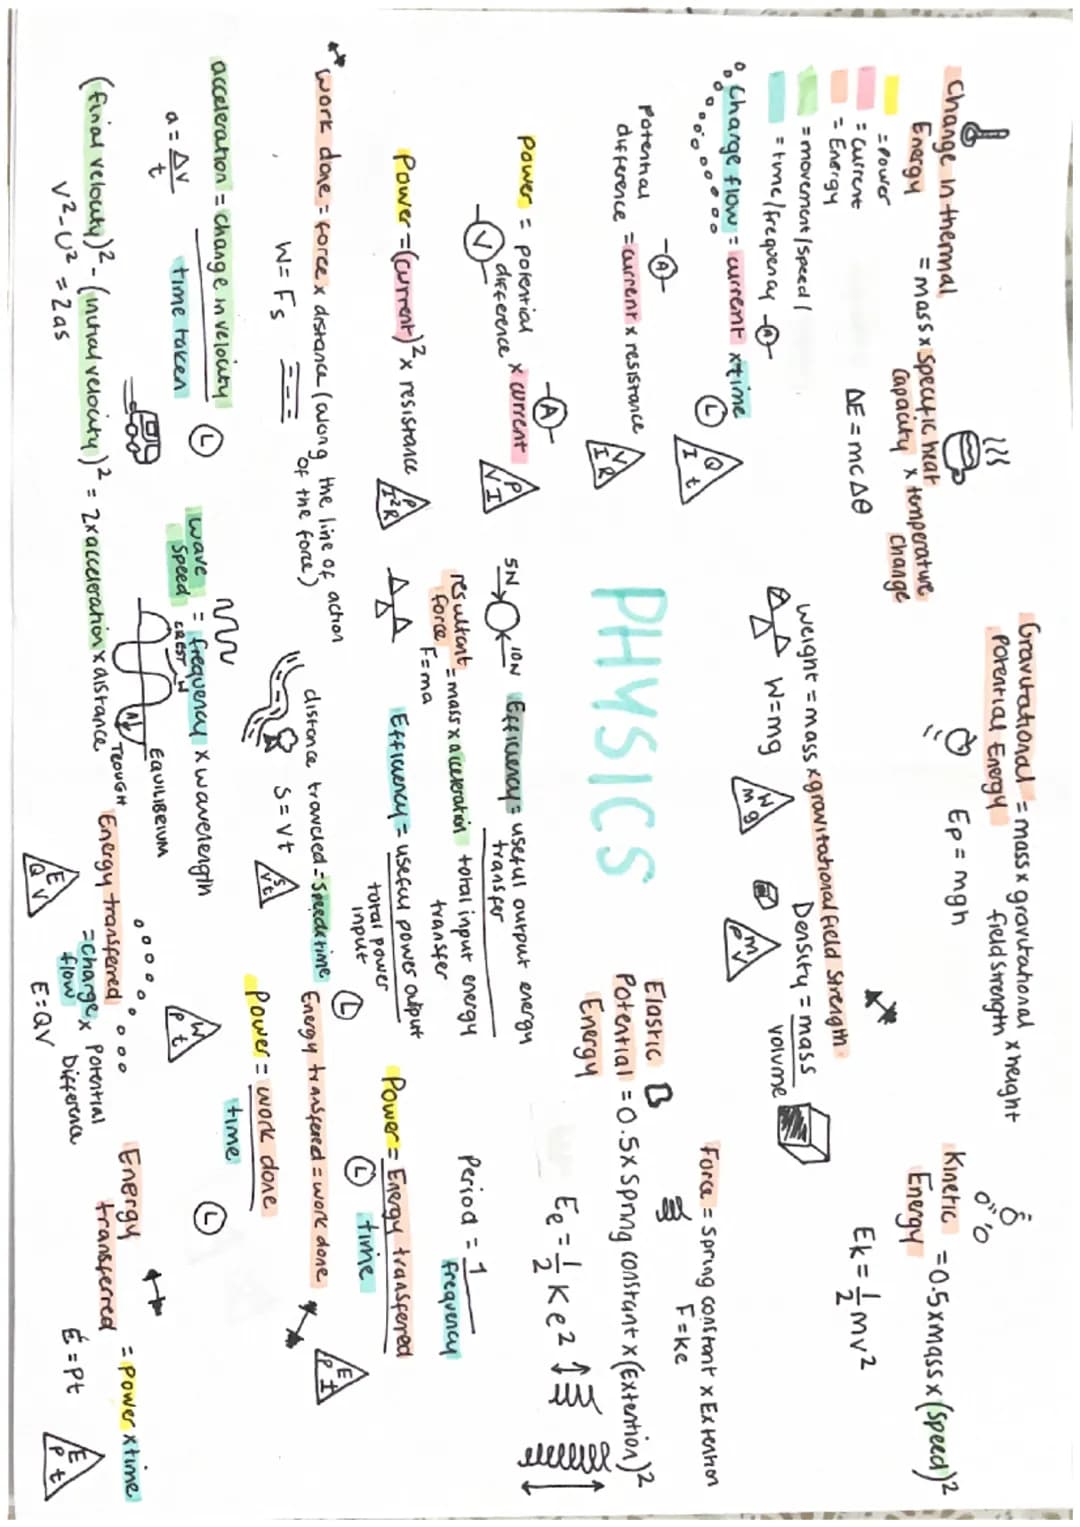 Change in thermal
Energy
= mass x Specific heat
Capacity x temperature
Change
ΔE = mcΔθ
= Power
= current
= Energy
= movement/speed/
= time/frequency
A
Gravitational
Potential Energy
= mass x gravitational
field strength x height
Ep = mgh
Kinetic
Energy
= 0.5 x mass x (speed)²
Ek = 1/2 mv²
Charge flow = current x time
L
Q
I t
potential
difference = current x resistance
A
V
I R
weight = mass x gravitational field strength
W = mg
W
m g
Density = mass
volume
m
ρ V
Force = Spring constant x Extention
F = ke
PHYSICS
Elastic
Potential = 0.5 x Spring constant x (Extention)²
Energy
Ee = 1/2 Ke²
Power = potential
difference x current
V
A
P
V I
Power = (current)² x resistance
P
I²R
5N
10N
resultant
force = mass x acceleration
F = ma
Efficiency = useful output energy
transfer
total input energy
transfer
Efficiency = useful power output
total power
input
Period = 1
frequency
Power = Energy transfered
time
L
work done = force x distance (along the line of action
of the force)
W = Fs
distance traveled = speed x time
S = vt
S
v t
L
Energy transfered = work done
E
P t
Power = work done
time
L
W
P t
acceleration = change in velocity
time taken
a = Δv
t
L
wave
speed = frequency x wavelength
CREST
W
A
EQUILIBRIUM
TROUGH
(final velocity)² - (initial velocity)² = 2 x acceleration x distance
v² - u² = 2as
Energy transferred
= charge x Potential
flow Difference
E = QV
E
Q V
Energy
transferred = power x time
E = Pt
E
P t